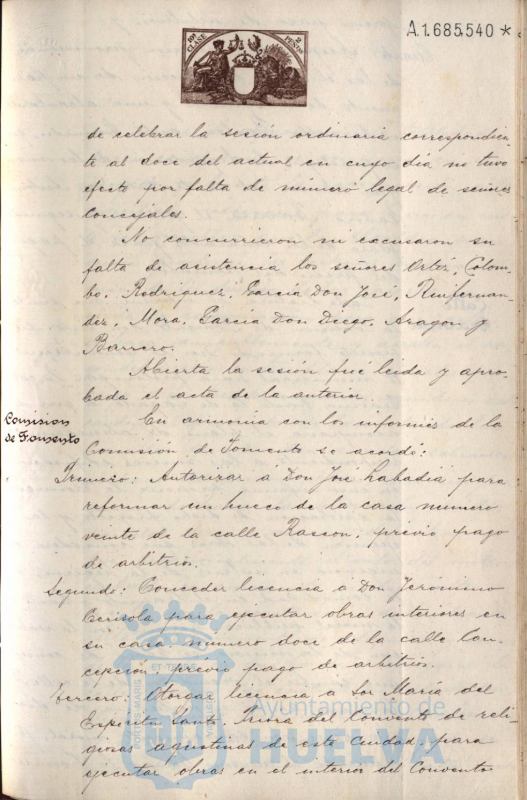 A.1.685.540 *
10ª CLASE
2 PESETAS
de celebrar la sesión ordinaria correspondien-
te al doce del actual en cuyo dia no tuvo
efecto por falta de número legal de señores
Concejales.
No concurrieron ni excusaron su
falta de asistencia los señores Ortiz, Colom-
bo, Rodriguez, Garcia Don José, Fernan-
dez, Mora, Garcia Don Diego, Aragon y
Barrero.
Abierta la sesión fué leida y apro-
bada el acta de la anterior.
Comision
de Fomento
En armonia con los informes de la
Comisión de Fomento se acordó:
Primero: Autorizar á Don José Labadia para
reformar un hueco de la casa numero
veinte de la calle Rascon, previo pago
de arbitrios.
Segundo: Conceder licencia a Don Jerónimo
Cerisola para ejecutar obras interiores en
su casa numero doce de la calle Con-
cepción, previo pago de arbitrios.
Tercero: Otorgar licencia a Sor Maria del
Espiritu Santo, Priora del Convento de reli-
giosas agustinas de esta Ciudad, para
ejecutar obras en el interior del Convento
Ayuntamiento de
HUELVA